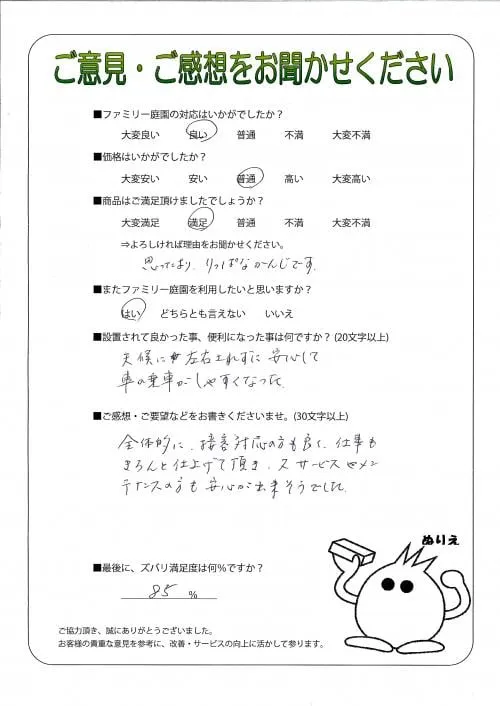 ご意見・ご感想をお聞かせください
■ファミリー庭園の対応はいかがでしたか？
大変良い 良い 普通 不満 大変不満
■価格はいかがでしたか？
大変安い 安い 普通 高い 大変高い
■商品はご満足頂けましたでしょうか？
大変満足 満足 普通 不満 大変不満
⇒よろしければ理由をお聞かせください。
思ったより、りっぱなかんじです。
■またファミリー庭園を利用したいと思いますか？
はい どちらとも言えない いいえ
■設置されて良かった事、便利になった事は何ですか？(20文字以上)
天候に左右されずに安心して
車の乗車がしやすくなった。
■ご感想・ご要望などをお書きくださいませ。(30文字以上)
全体的に、接客対応の方も良く、仕事も
きちんと仕上げて頂き、スサービスやメン
テナンスの方も安心が出来そうでした。
ぬりえ
■最後に、ズバリ満足度は何％ですか？
85 %
ご協力頂き、誠にありがとうございました。
お客様の貴重な意見を参考に、改善・サービスの向上に活かして参ります。